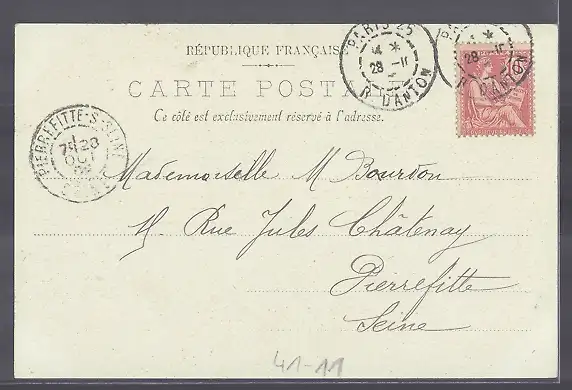 RÉPUBLIQUE FRANÇAISE
CARTE POSTALE
Ce côté est exclusivement réservé à l'adresse.
PARIS 25
28
R. DANTON
PARIS
28
R. DANTON
PIERREFITTE-S-SEINE
7 23
OCT
SEINE
Mademoiselle M Bourdon
11. Rue Jules Châtenay
Pierrefitte
Seine
41-11